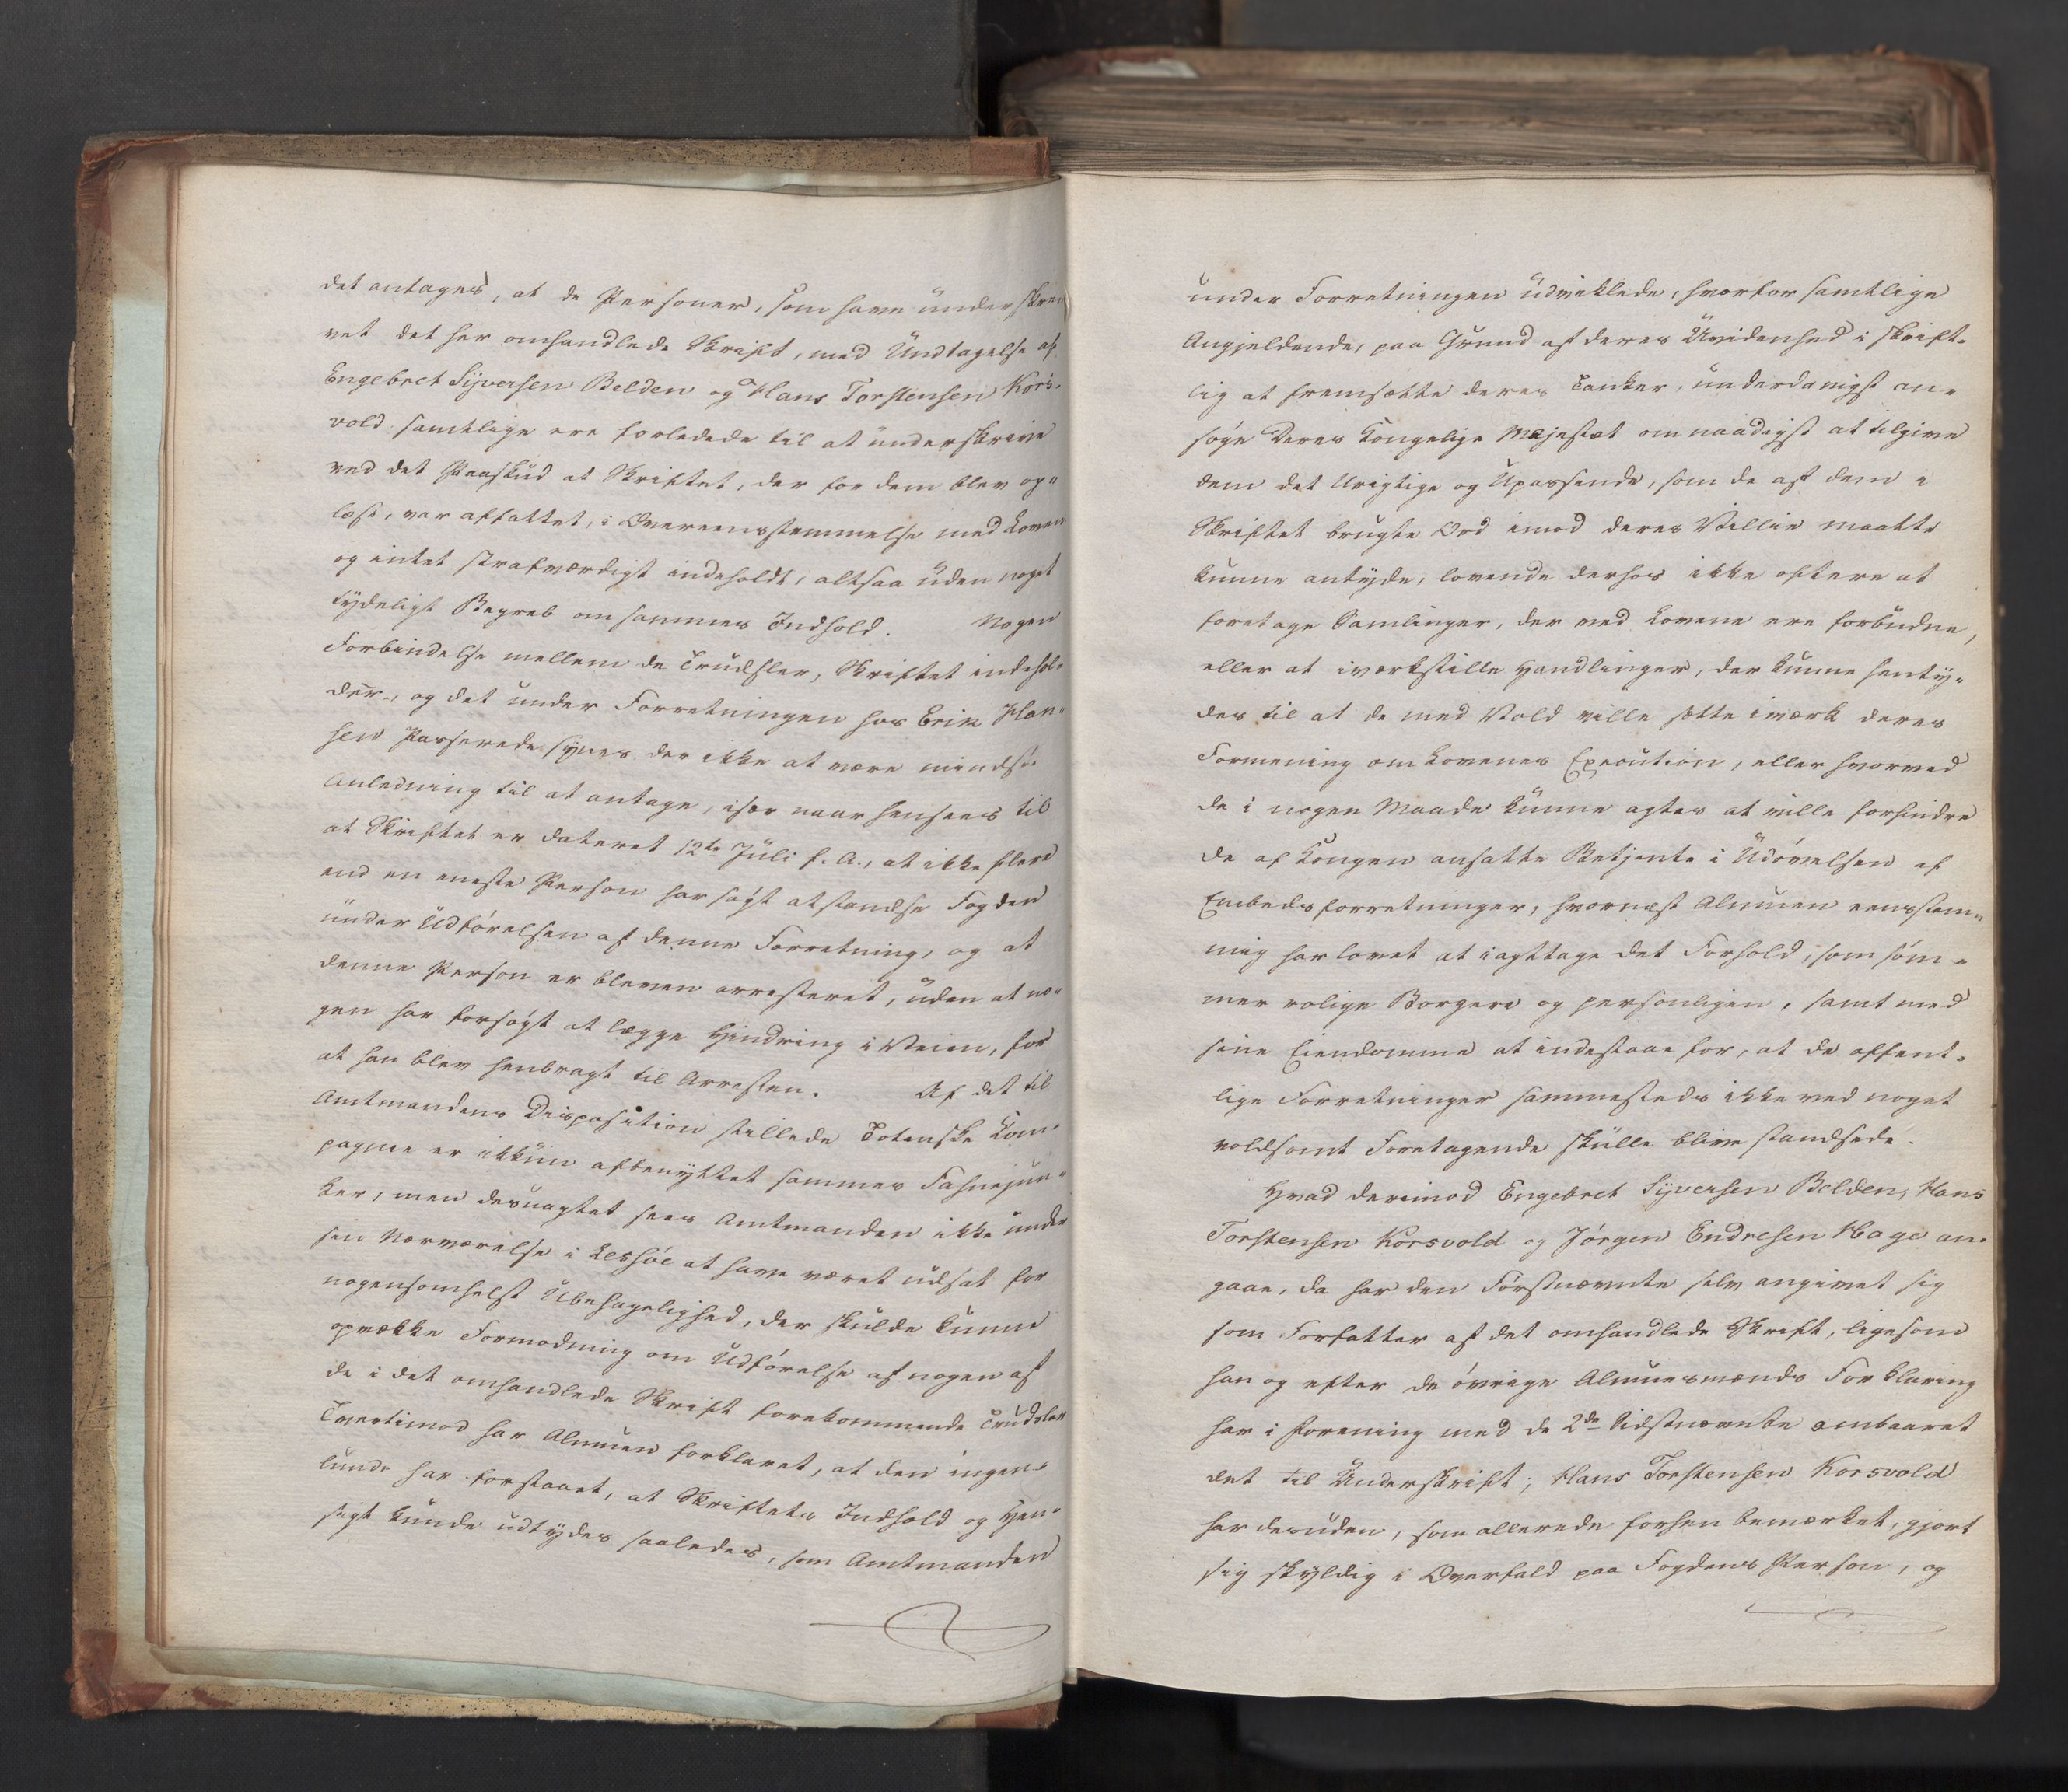 det antages, at de Personer, som have underskre-
vet det her omhandlede Skrift, med Undtagelse af
Engebret Syversen Belden og Hans Torstensen Kors-
vold samtlige ere forledede til at underskrive
ved det Paaskud at Skriftet, der for dem blev op-
læst, var affattet, i Overeensstemmelse med Loven
og intet strafværdigt indeholdt, altsaa uden noget
tydeligt Begreb om sammes Indhold. Nogen
Forbindelse mellem de Trudsler, Skriftet indehol-
der, og det under Forretningen hos Erik Han-
sen Passerede synes der ikke at være mindste
Anledning til at antage, især naar henseees til
at Skriftet er dateret 12te Juli f. A., at ikke flere
end en eneste Person har søgt at standse Fogden
under Udførelsen af denne Forretning, og at
denne Person er bleven arresteret, uden at no-
gen har forsøgt at lægge Hindring i Veien, for
at han blev henbragt til Arresten. Af det til
Amtmandens Disposition stillede Totenske Com-
pagnie er ikkun afbenyttet sammes Fahnejun-
ker, men desuagtet sees Amtmanden ikke under
sin Nærværelse i Leshøe at have været udsat for
nogensomhelst Ubehagelighed, der skulde kunne
opvække Formodning om Udførelse af nogen af
de i det omhandlede Skrift forekommende Trudsler
Tvertimod har Almuen forklaret, at den ingen-
lunde har forstaaet, at Skriftets Indhold og Hen-
sigt kunde udtydes saaledes, som Amtmanden
under Forretningen udviklede, hvorfor samtlige
Angjeldende, paa Grund af deres Uvidenhed i skrift-
lig at fremsætte deres Tanker, underdanigst an-
søge Deres Kongelige Majestæt om naadigst at tilgive
dem det Urigtige og Upassende, som de af dem i
Skriftet brugte Ord imod deres Villie maatte
kunne antyde, lovende derhos ikke oftere at
foretage Samlinger, der ved Lovene ere forbudne,
eller at iværkstille Handlinger, der kunne henty-
des til at de med Vold ville sætte iværk deres
Formening om Lovenes Execution, eller hvorved
de i nogen Maade kunne agtes at ville forhindre
de af Kongen ansatte Betjente i Udøvelsen af
Embedsforretninger, hvornæst Almuen eensstem-
mig har lovet at iagttage det Forhold, som søm-
mer rolige Borgere og personligen, samt med
sine Eiendomme at indestaae for, at de offent-
lige Forretninger sammesteds ikke ved noget
voldsomt Foretagende skulle blive standsede.
Hvad derimod Engebret Syversen Belden, Hans
Torstensen Korsvold og Jørgen Endresen Hage an-
gaae, da har den Førstnævnte selv angivet sig
som Forfatter af det omhandlede Skrift, ligesom
han og efter de øvrige Almuesmænds Forklaring
har i Forening med de 2de Sidstnævnte ombaaret
det til Underskrift; Hans Torstensen Korsvold
har desuden, som allerede forhen bemærket, gjort
sig skyldig i Overfald paa Fogdens Person, og